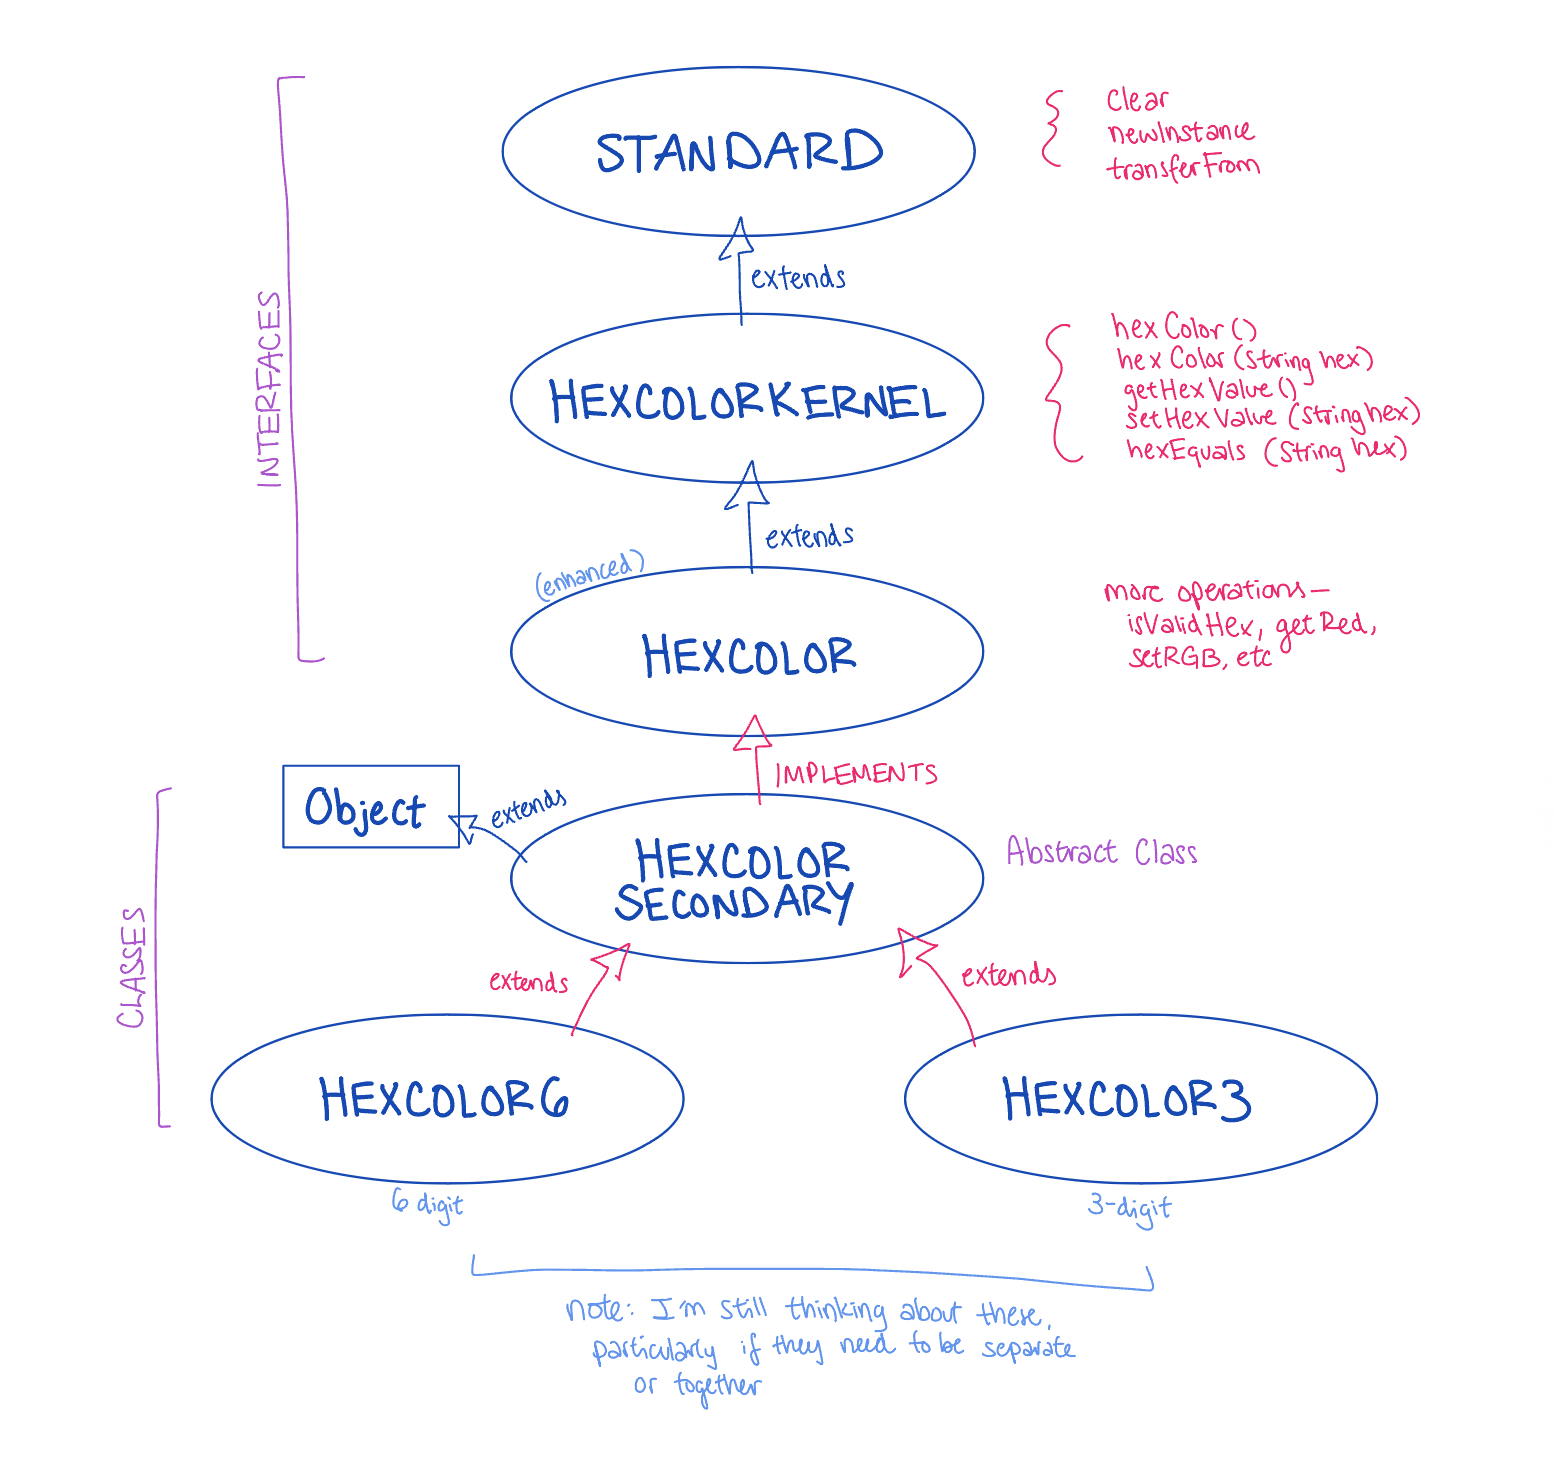 INTERFACES
STANDARD
Clear
newInstance
transferFrom
extends
HEXCOLORKERNEL
hexColor()
hexColor(String hex)
getHexValue()
setHexValue (String hex)
hexEquals (String hex)
extends
(enhanced)
HEXCOLOR
more operations—
isValidHex, getRed,
setRGB, etc
IMPLEMENTS
CLASSES
Object
extends
HEXCOLOR
SECONDARY
Abstract Class
extends
extends
HEXCOLOR6
HEXCOLOR3
6 digit
3-digit
note: I'm still thinking about these,
particularly if they need to be separate
or together